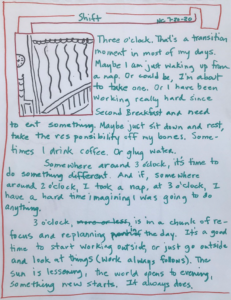 Shift
Three o'clock. That's a transition
moment in most of my days.
Maybe I am just waking up from
a nap. Or could be, I'm about
to take one. Or I have been
working really hard since
Second Breakfast and need
to eat something. Maybe just sit down and rest,
take the responsibility off my bones. Some-
times I drink coffee. Or glug water.
Somewhere around 3 o'clock, it's time to
do something different. And if, somewhere
around 2 o'clock, I took a nap, at 3 o'clock, I
have a hard time imagining I was going to do
anything.
3 o'clock, more or less, is in a chunk of re-
focus and replanning the day. It's a good
time to start working outside, or just go outside
and look at things (work always follows). The
sun is lessening, the world opens to evening,
something new starts. It always does.